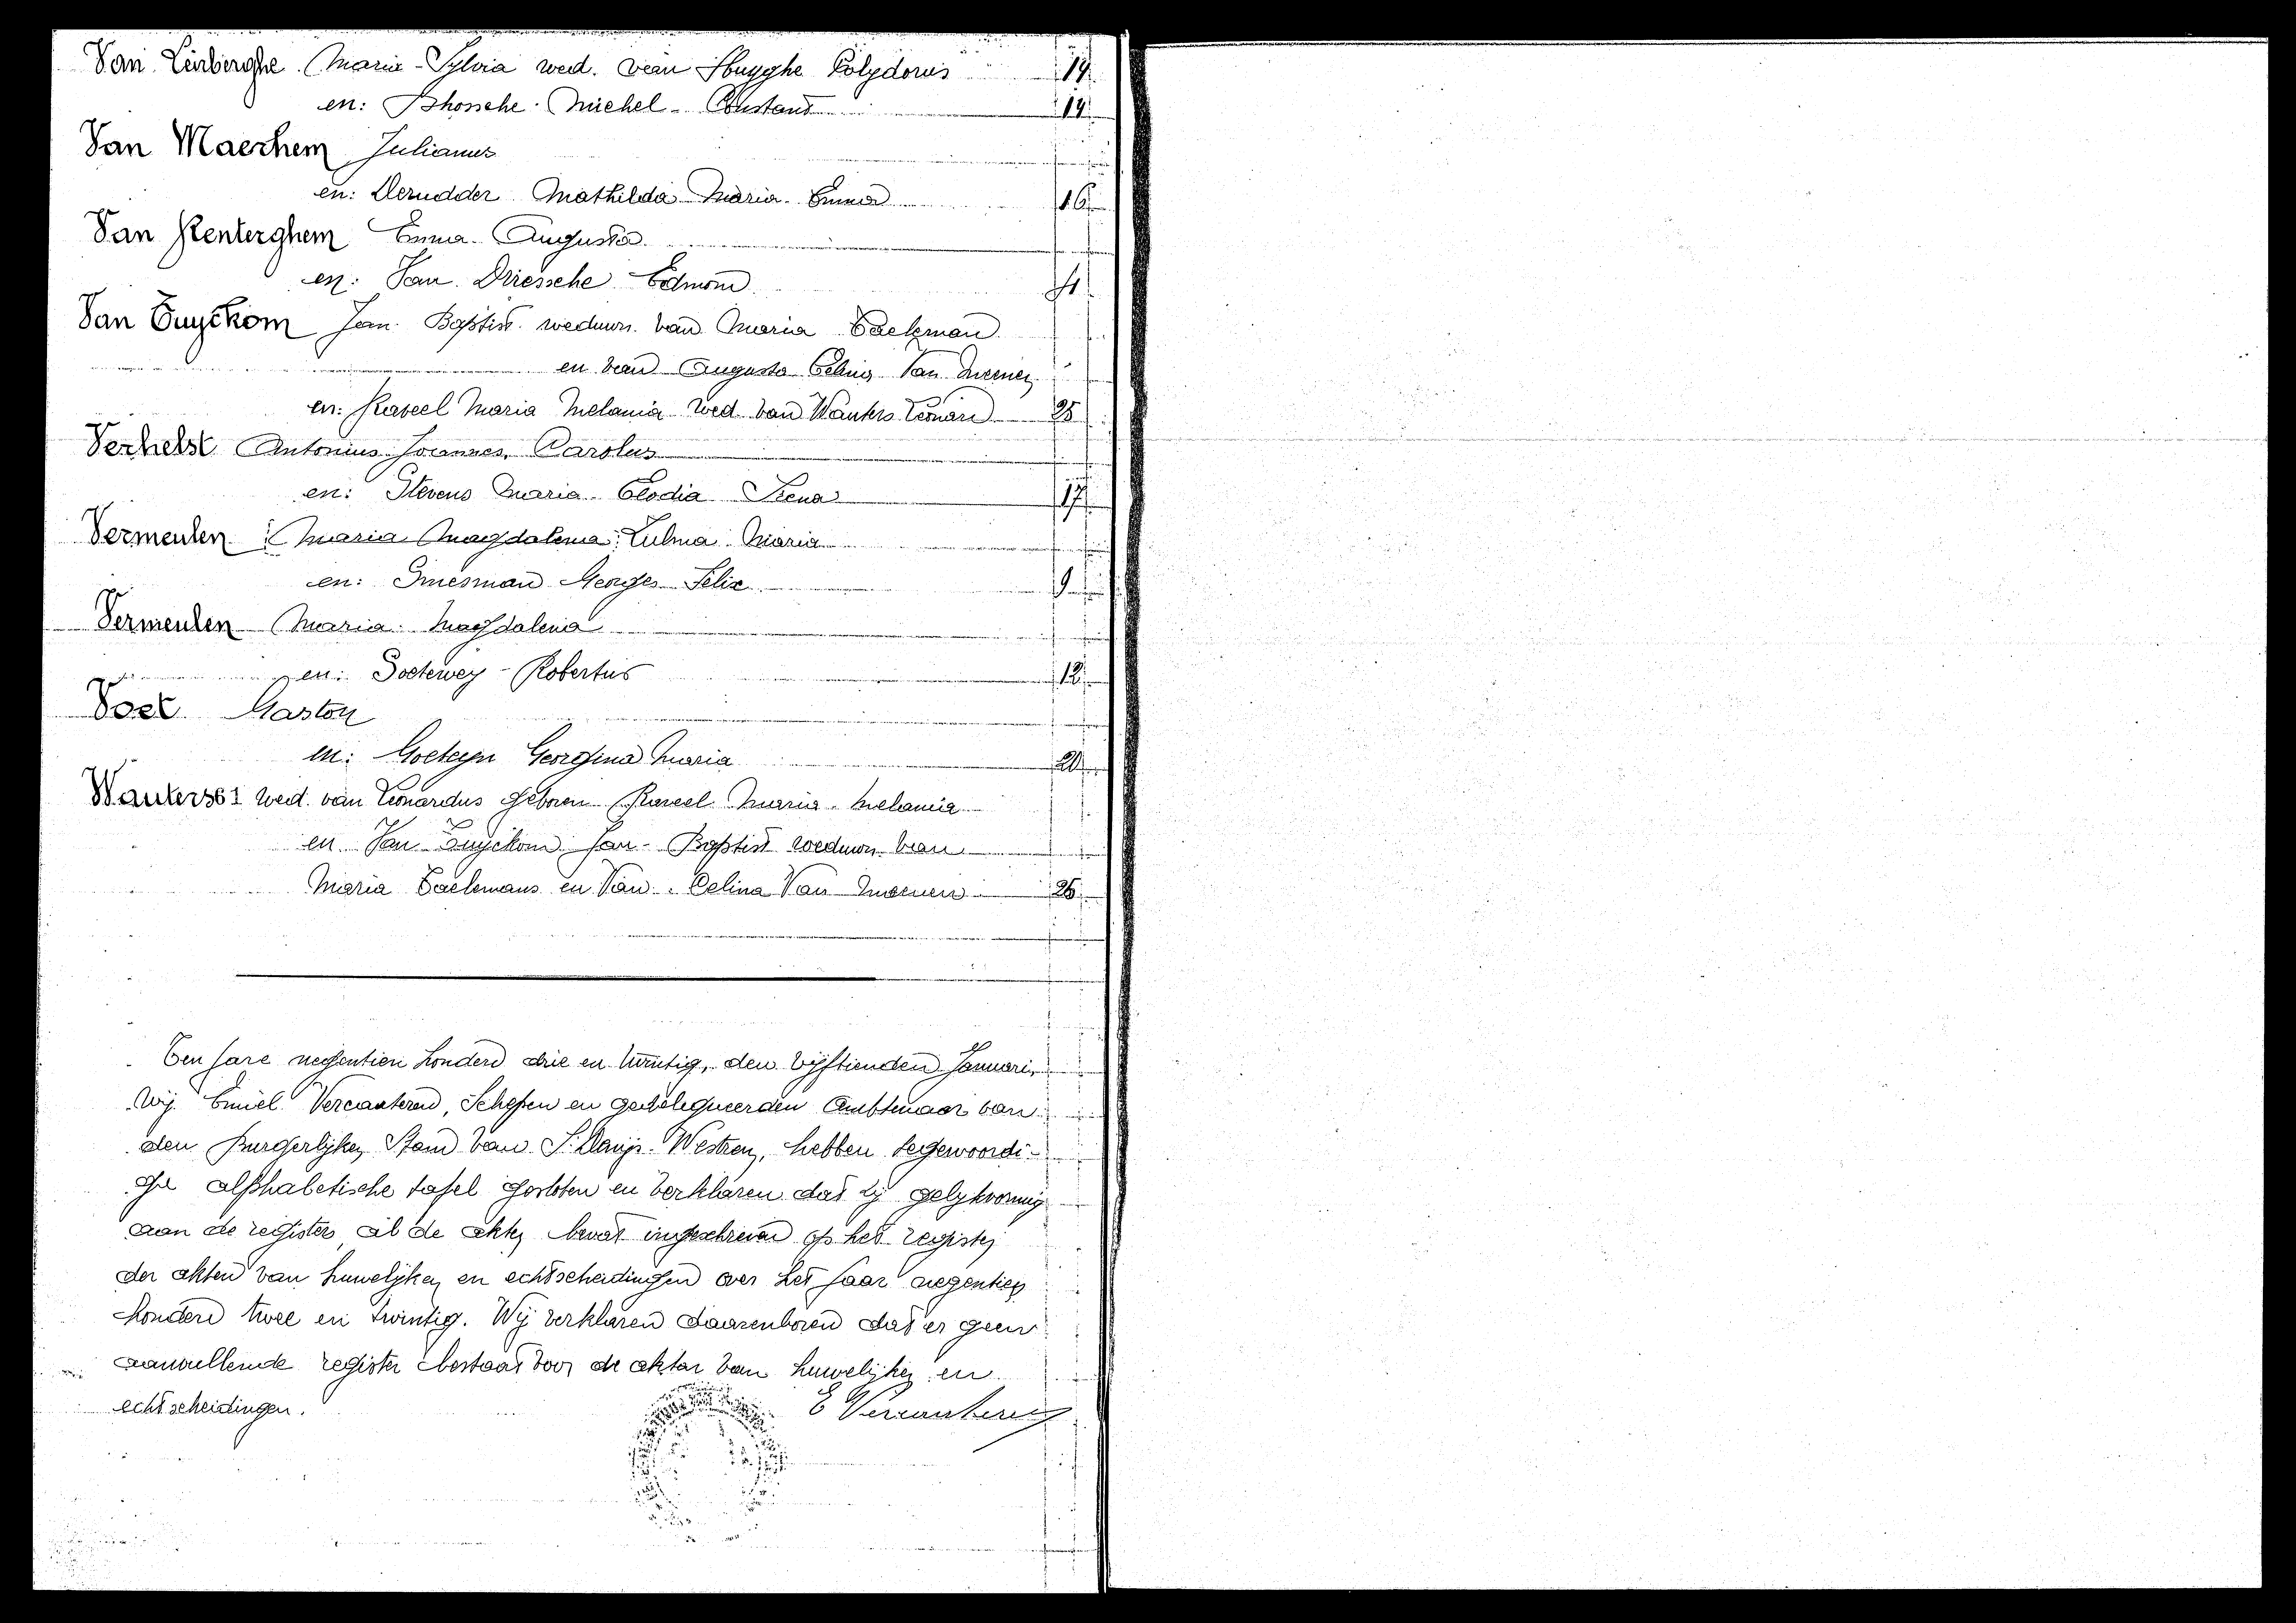 Van Linberghe Maria-Sylvia wed. van Huyghe Polydorus 19.
en: D'hossche Michel-Constant 19.
Van Maerhem Julianus
en: Derudder Mathilda Maria Emma 16
Van Renterghem Emma-Augusta
en: Van Driessche Edmond
Van Tuyckom Jan. Baptist. weduwn. van Maria Baekman
en van Augusta Celina Van
en: Raveel Maria Melania wed. van Wauters Leonard 25
Verhelst Antonius Joannes Carolus
en: Stevens Maria Clodia Irena 17
Vermeulen Maria Magdalena Zulma Maria
en: Georges Felix 9
Vermeulen Maria Magdalena
en: Robertus 12
Gaston
en: Georgina Maria 20
Wauters wed. van Leonardus geboren Raveel Maria Melania
en Van Tuyckom Jan-Baptist weduwn. van
Maria en Van Celina Van 25
Een jare negentien honderd drie en twintig, den vyftienden Januari,
Wij Emiel Vercauteren, Schepen en gedelegueerden Ambtenaar van
den Burgerlyken Stand van St Denijs-Westrem, hebben tegewoordi-
ge alphabetische tafel gesloten en verklaren dat zy gelykvormig
aan de registers al de akten bevat ingeschreven op het register
der akten van huwelijken en echtscheidingen over het jaar negentien
honderd twee en twintig. Wij verklaren daarenboven dat er geen
aanvullende register bestaat voor de akten van huwelijken en
echtscheidingen. E Vercauteren